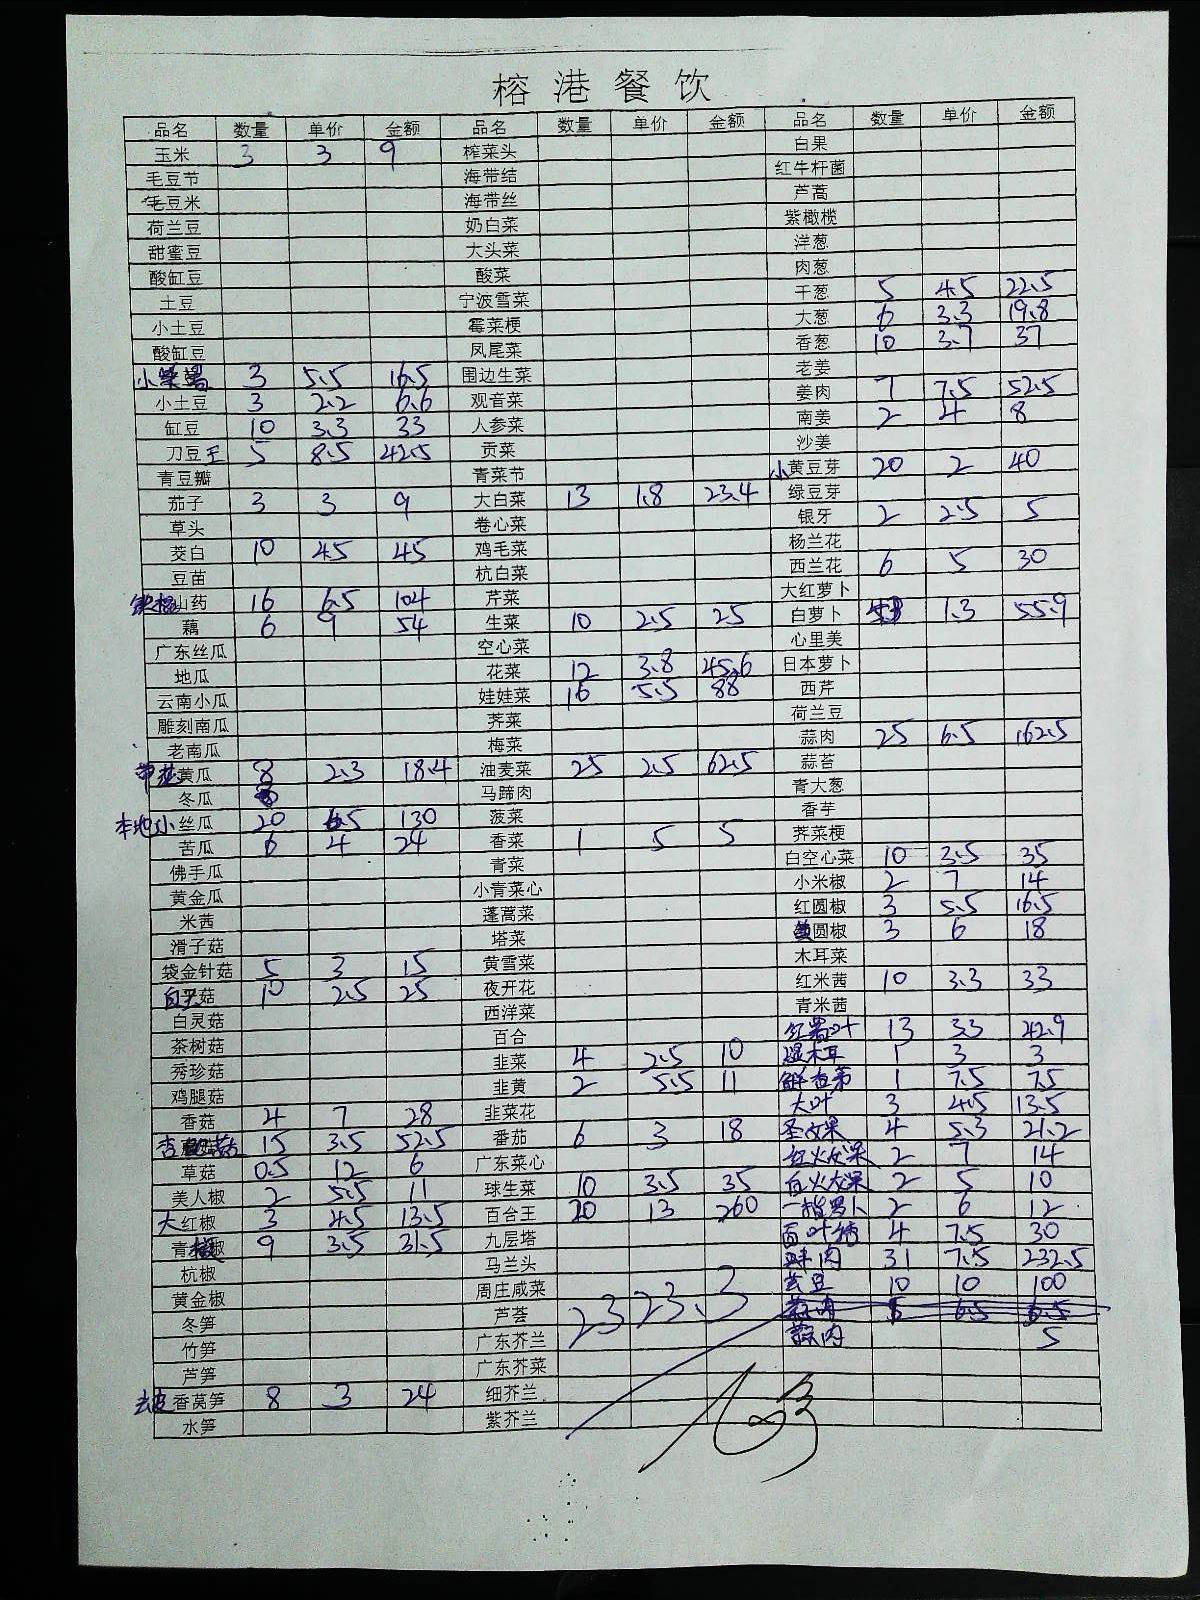 榕港餐饮
品名 数量 单价 金额 品名 数量 单价 金额 品名 数量 单价 金额
玉米 3 3 9 榨菜头 白果
毛豆节 海带结 红牛杆菌
毛豆米 海带丝 芦蒿
荷兰豆 奶白菜 紫橄榄
甜蜜豆 大头菜 洋葱
酸缸豆 酸菜 肉葱
土豆 宁波雪菜 干葱 5 4.5 22.5
小土豆 霉菜梗 大葱 6 3.3 19.8
酸缸豆 凤尾菜 香葱 10 3.7 37
小紫薯 3 5.5 16.5 围边生菜 老姜
小土豆 3 2.2 6.6 观音菜 姜肉 7 7.5 52.5
缸豆 10 3.3 33 人参菜 南姜 2 4 8
刀豆王 5 8.5 42.5 贡菜 沙姜
青豆瓣 青菜节 小黄豆芽 20 2 40
茄子 3 3 9 大白菜 13 1.8 23.4 绿豆芽
草头 卷心菜 银牙 2 2.5 5
茭白 10 4.5 45 鸡毛菜 杨兰花
豆苗 杭白菜 西兰花 6 5 30
铁棍山药 16 6.5 104 芹菜 大红萝卜
藕 6 9 54 生菜 10 2.5 25 白萝卜 43 1.3 55.9
广东丝瓜 空心菜 心里美
地瓜 花菜 12 3.8 45.6 日本萝卜
云南小瓜 娃娃菜 16 5.5 88 西芹
雕刻南瓜 荠菜 荷兰豆
老南瓜 梅菜 蒜肉 25 6.5 162.5
黄瓜 8 2.3 18.4 油麦菜 25 2.5 62.5 蒜苔
冬瓜 马蹄肉 青大葱
本地小丝瓜 20 6.5 130 菠菜 香芋
苦瓜 6 4 24 香菜 1 5 5 荠菜梗
佛手瓜 青菜 白空心菜 10 3.5 35
黄金瓜 小青菜心 小米椒 2 7 14
米茜 蓬蒿菜 红圆椒 3 5.5 16.5
滑子菇 塔菜 黄圆椒 3 6 18
袋金针菇 5 3 15 黄雪菜 木耳菜
白玉菇 10 2.5 25 夜开花 红米茜 10 3.3 33
白灵菇 西洋菜 青米茜
茶树菇 百合 红薯叶 13 3.3 42.9
秀珍菇 韭菜 4 2.5 10 湿木耳 1 3 3
鸡腿菇 韭黄 2 5.5 11 鲜香茅 1 7.5 7.5
香菇 4 7 28 韭菜花 大叶 3 4.5 13.5
杏鲍菇 15 3.5 52.5 番茄 6 3 18 圣女果 4 5.3 21.2
草菇 0.5 12 6 广东菜心 红火龙果 2 7 14
美人椒 2 5.5 11 球生菜 10 3.5 35 白火龙果 2 5 10
大红椒 3 4.5 13.5 百合王 20 13 260 一指萝卜 2 6 12
青椒 9 3.5 31.5 九层塔 百叶结 4 7.5 30
杭椒 马兰头 肉 31 7.5 232.5
黄金椒 周庄咸菜 芸豆 10 10 100
冬笋 芦荟 2323.3 蒜肉 6.5 6.5
竹笋 广东芥兰 蒜肉 5
芦笋 广东芥菜
去皮香莴笋 8 3 24 细芥兰
水笋 紫芥兰